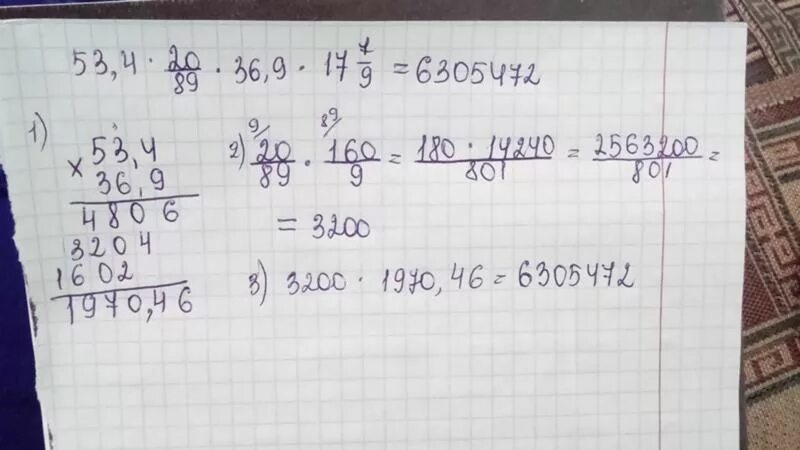 53,4 · 20/89 · 36,9 · 17 7/9 = 6305472
1)
× 53,4
36,9
4806
3204
1602
1970,46
2) 9/ 20/89 · 89/ 160/9 = 180 · 14240/801 = 2563200/801 =
= 3200
3) 3200 · 1970,46 = 6305472